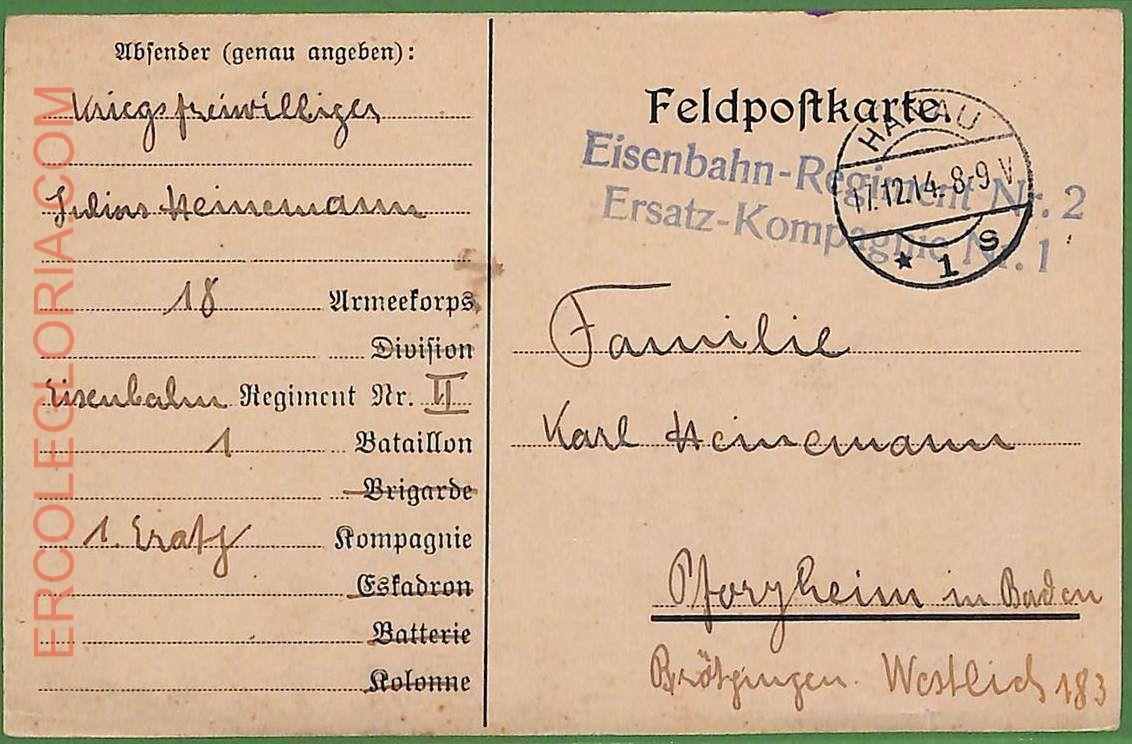 Absender (genau angeben):
Kriegsfreiwilliger
Julius Heinemann
18 Armeekorps
Division
Eisenbahn Regiment Nr. II
1 Bataillon
Brigarde
1. Ersatz Kompagnie
Eskadron
Batterie
Kolonne
Feldpostkarte.
HANAU
17.12.14.8-9 V.
* 1 S
Eisenbahn-Regiment Nr. 2
Ersatz-Kompagnie Nr. 1
Familie
Karl Heinemann
Pforzheim in Baden
Brötzingen. Westlich 183
ERCOLEGLORIA.COM